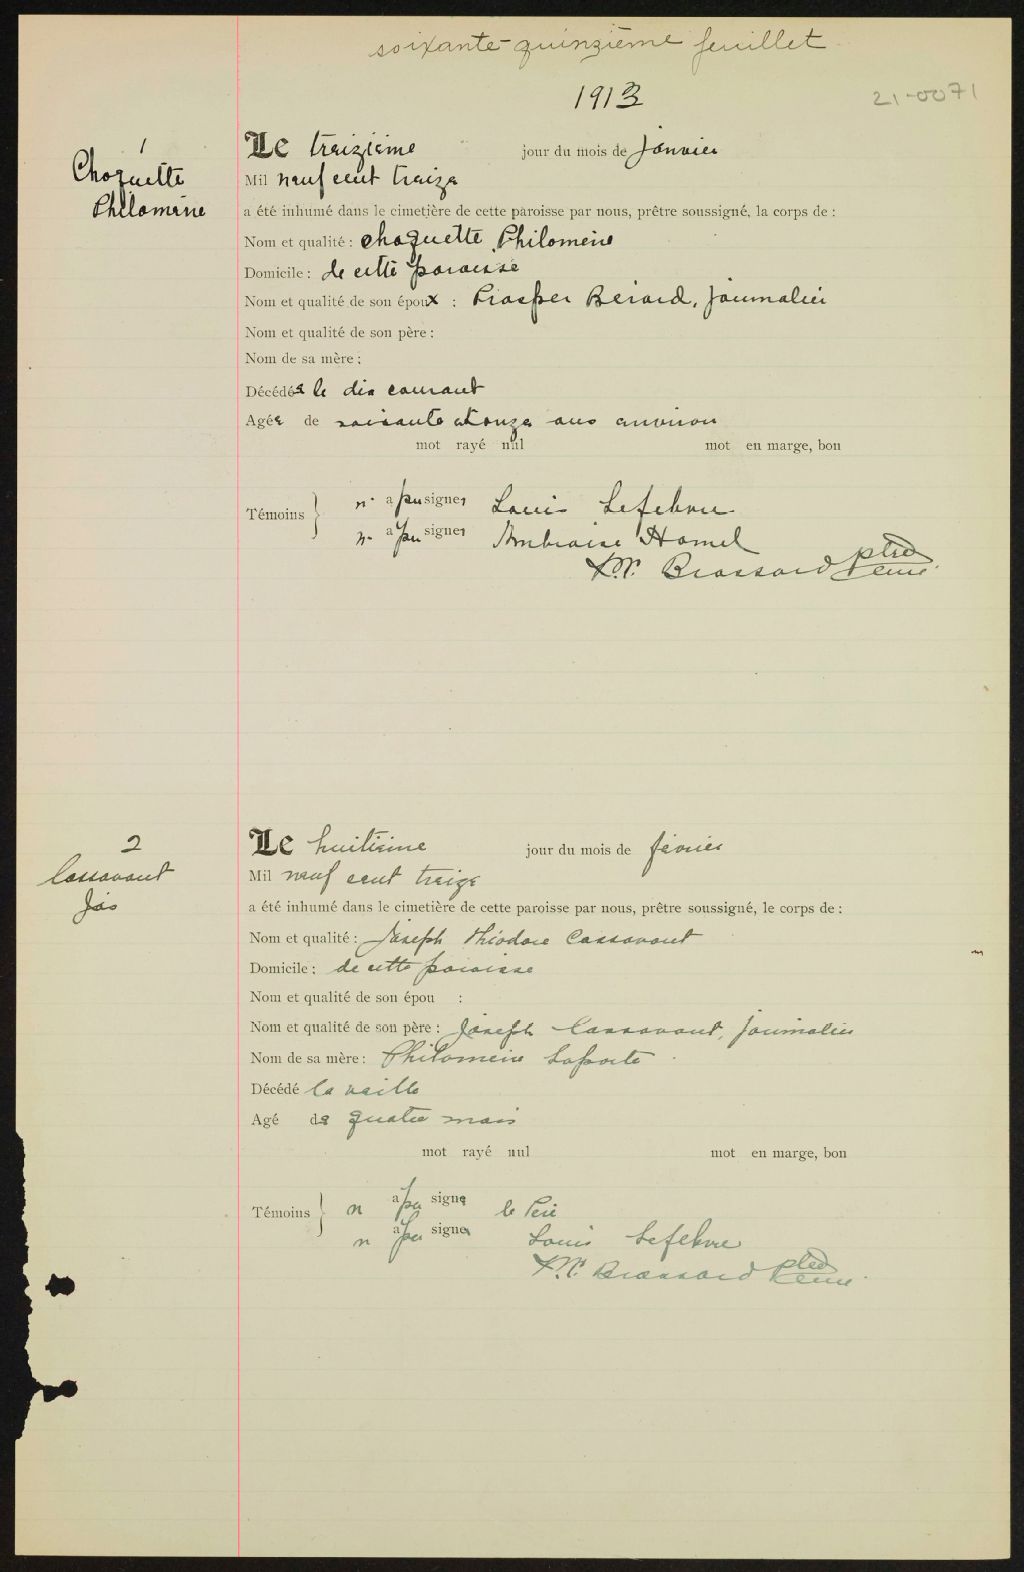 soixante-quinzième feuillet
1913
21-0071
1
Choquette
Philomène
Le treizième jour du mois de janvier
Mil neuf cent treize
a été inhumé dans le cimetière de cette paroisse par nous, prêtre soussigné, la corps de :
Nom et qualité : Choquette Philomène
Domicile : de cette paroisse
Nom et qualité de son époux : Prosper Berard, journalier
Nom et qualité de son père :
Nom de sa mère :
Décédée le dix courant
Agée de soixante et onze ans environ
mot rayé nul mot en marge, bon
Témoins } n' a pu signer Louis Lefebvre
n' a pu signer Ambroise Hamel
Brassard ptre curé
2
Cassavant
Jos
Le huitième jour du mois de février
Mil neuf cent treize
a été inhumé dans le cimetière de cette paroisse par nous, prêtre soussigné, le corps de :
Nom et qualité : Joseph Théodore Cassavant
Domicile : de cette paroisse
Nom et qualité de son épou :
Nom et qualité de son père : Joseph Cassavant, journalier
Nom de sa mère : Philomène Laporte
Décédé la veille
Agé de quatre mois
mot rayé nul mot en marge, bon
Témoins } n a pu signer le Père
n a pu signer Louis Lefebvre
Brassard ptre curé